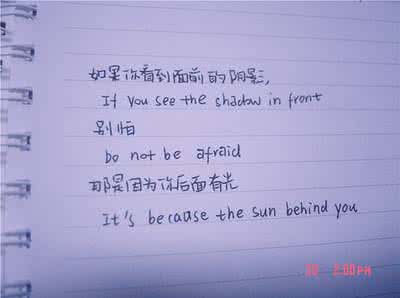 如果你看到面前的阴影,
If you see the shadow in front
别怕
Do not be afraid
那是因为你后面有光
It's because the sun behind you
2:00PM